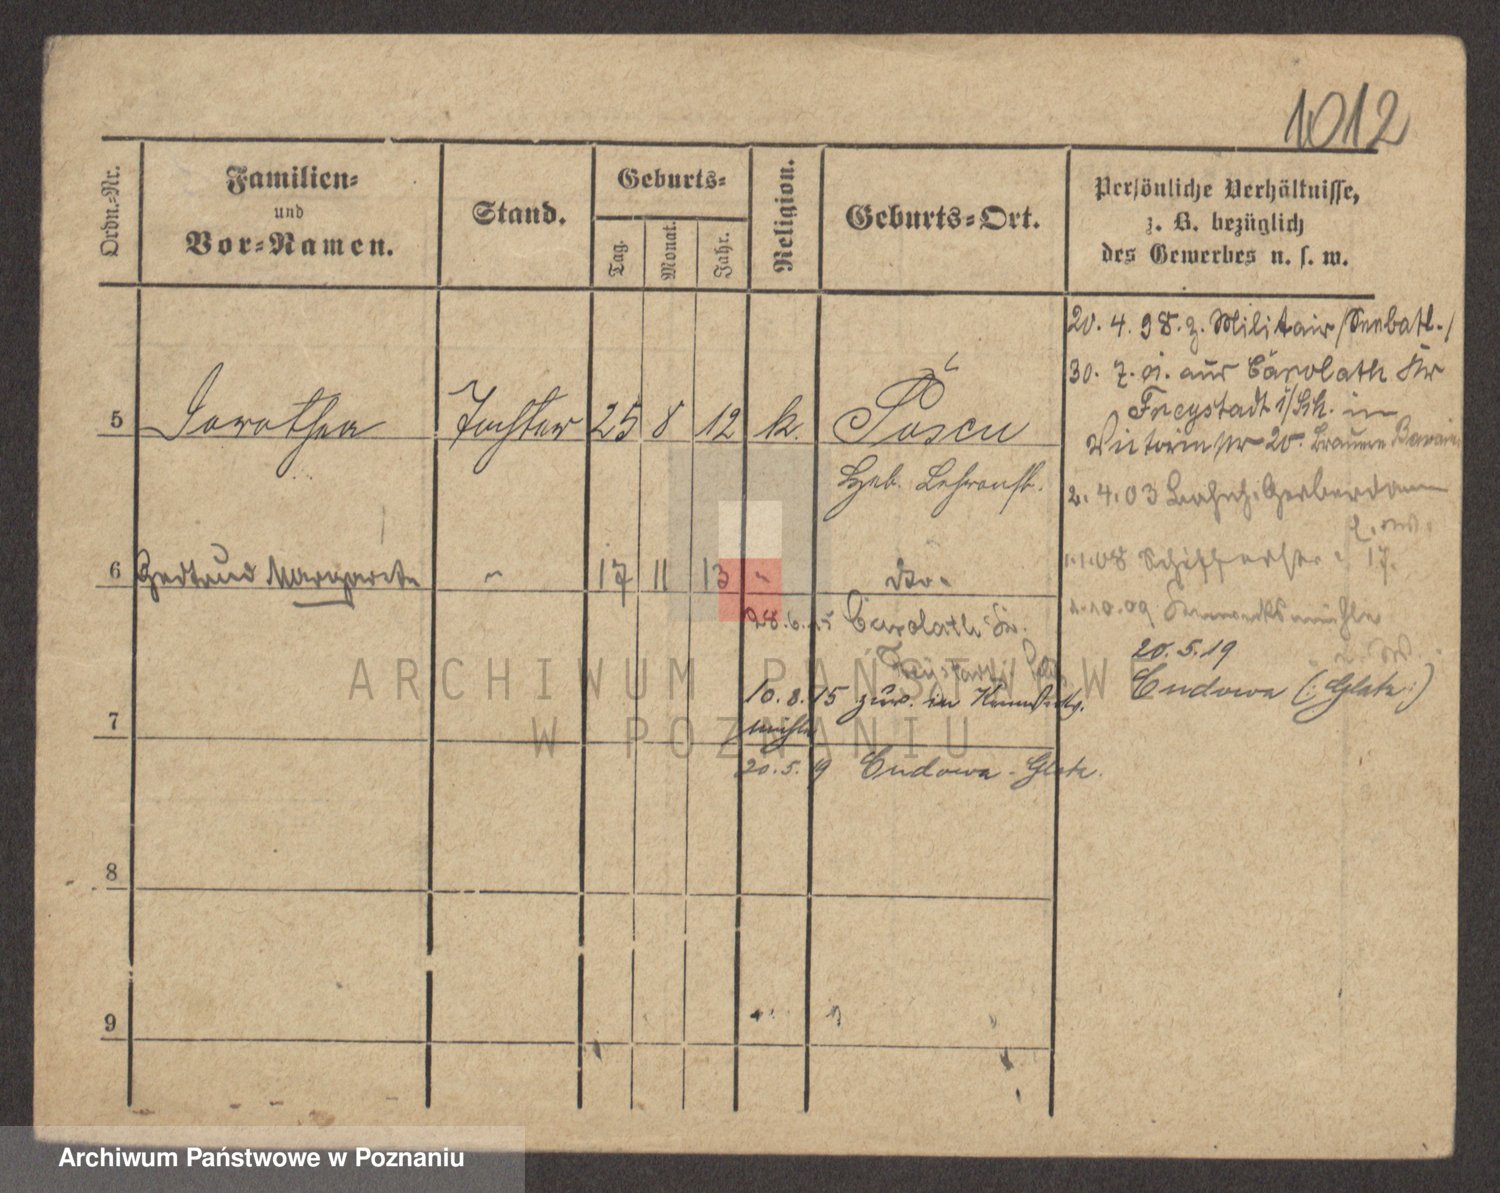 1012
Ordn.-Nr.
Familien-
und
Vor-Namen.
Stand.
Geburts-
Tag.
Monat.
Jahr.
Religion.
Geburts-Ort.
Persönliche Verhältnisse,
z. B. bezüglich
des Gewerbes u. s. w.
20. 4. 98. z. Militair /Seebatl./
30. 7. 01. aus Carolath Kr
Freystadt i/Sch. in
5 Dorothea Tochter 25 8 12 k. Posen
Victoria str 20. Brauerei Bavaria
Heb. Lehranst.
2. 4. 03 Gerberdamm
6 Gertrud Margarete " 17 11 13 " Do.
1.1.08 17.
28.6.15 Carolath Kr.
1.10.09
20.5.19
Cudowa (:Glatz:)
10.8.15 zur. in
mühle
7
20.5.19 Cudowa - Glatz.
8
9
ARCHIWUM PAŃSTWOWE
W POZNANIU
Archiwum Państwowe w Poznaniu